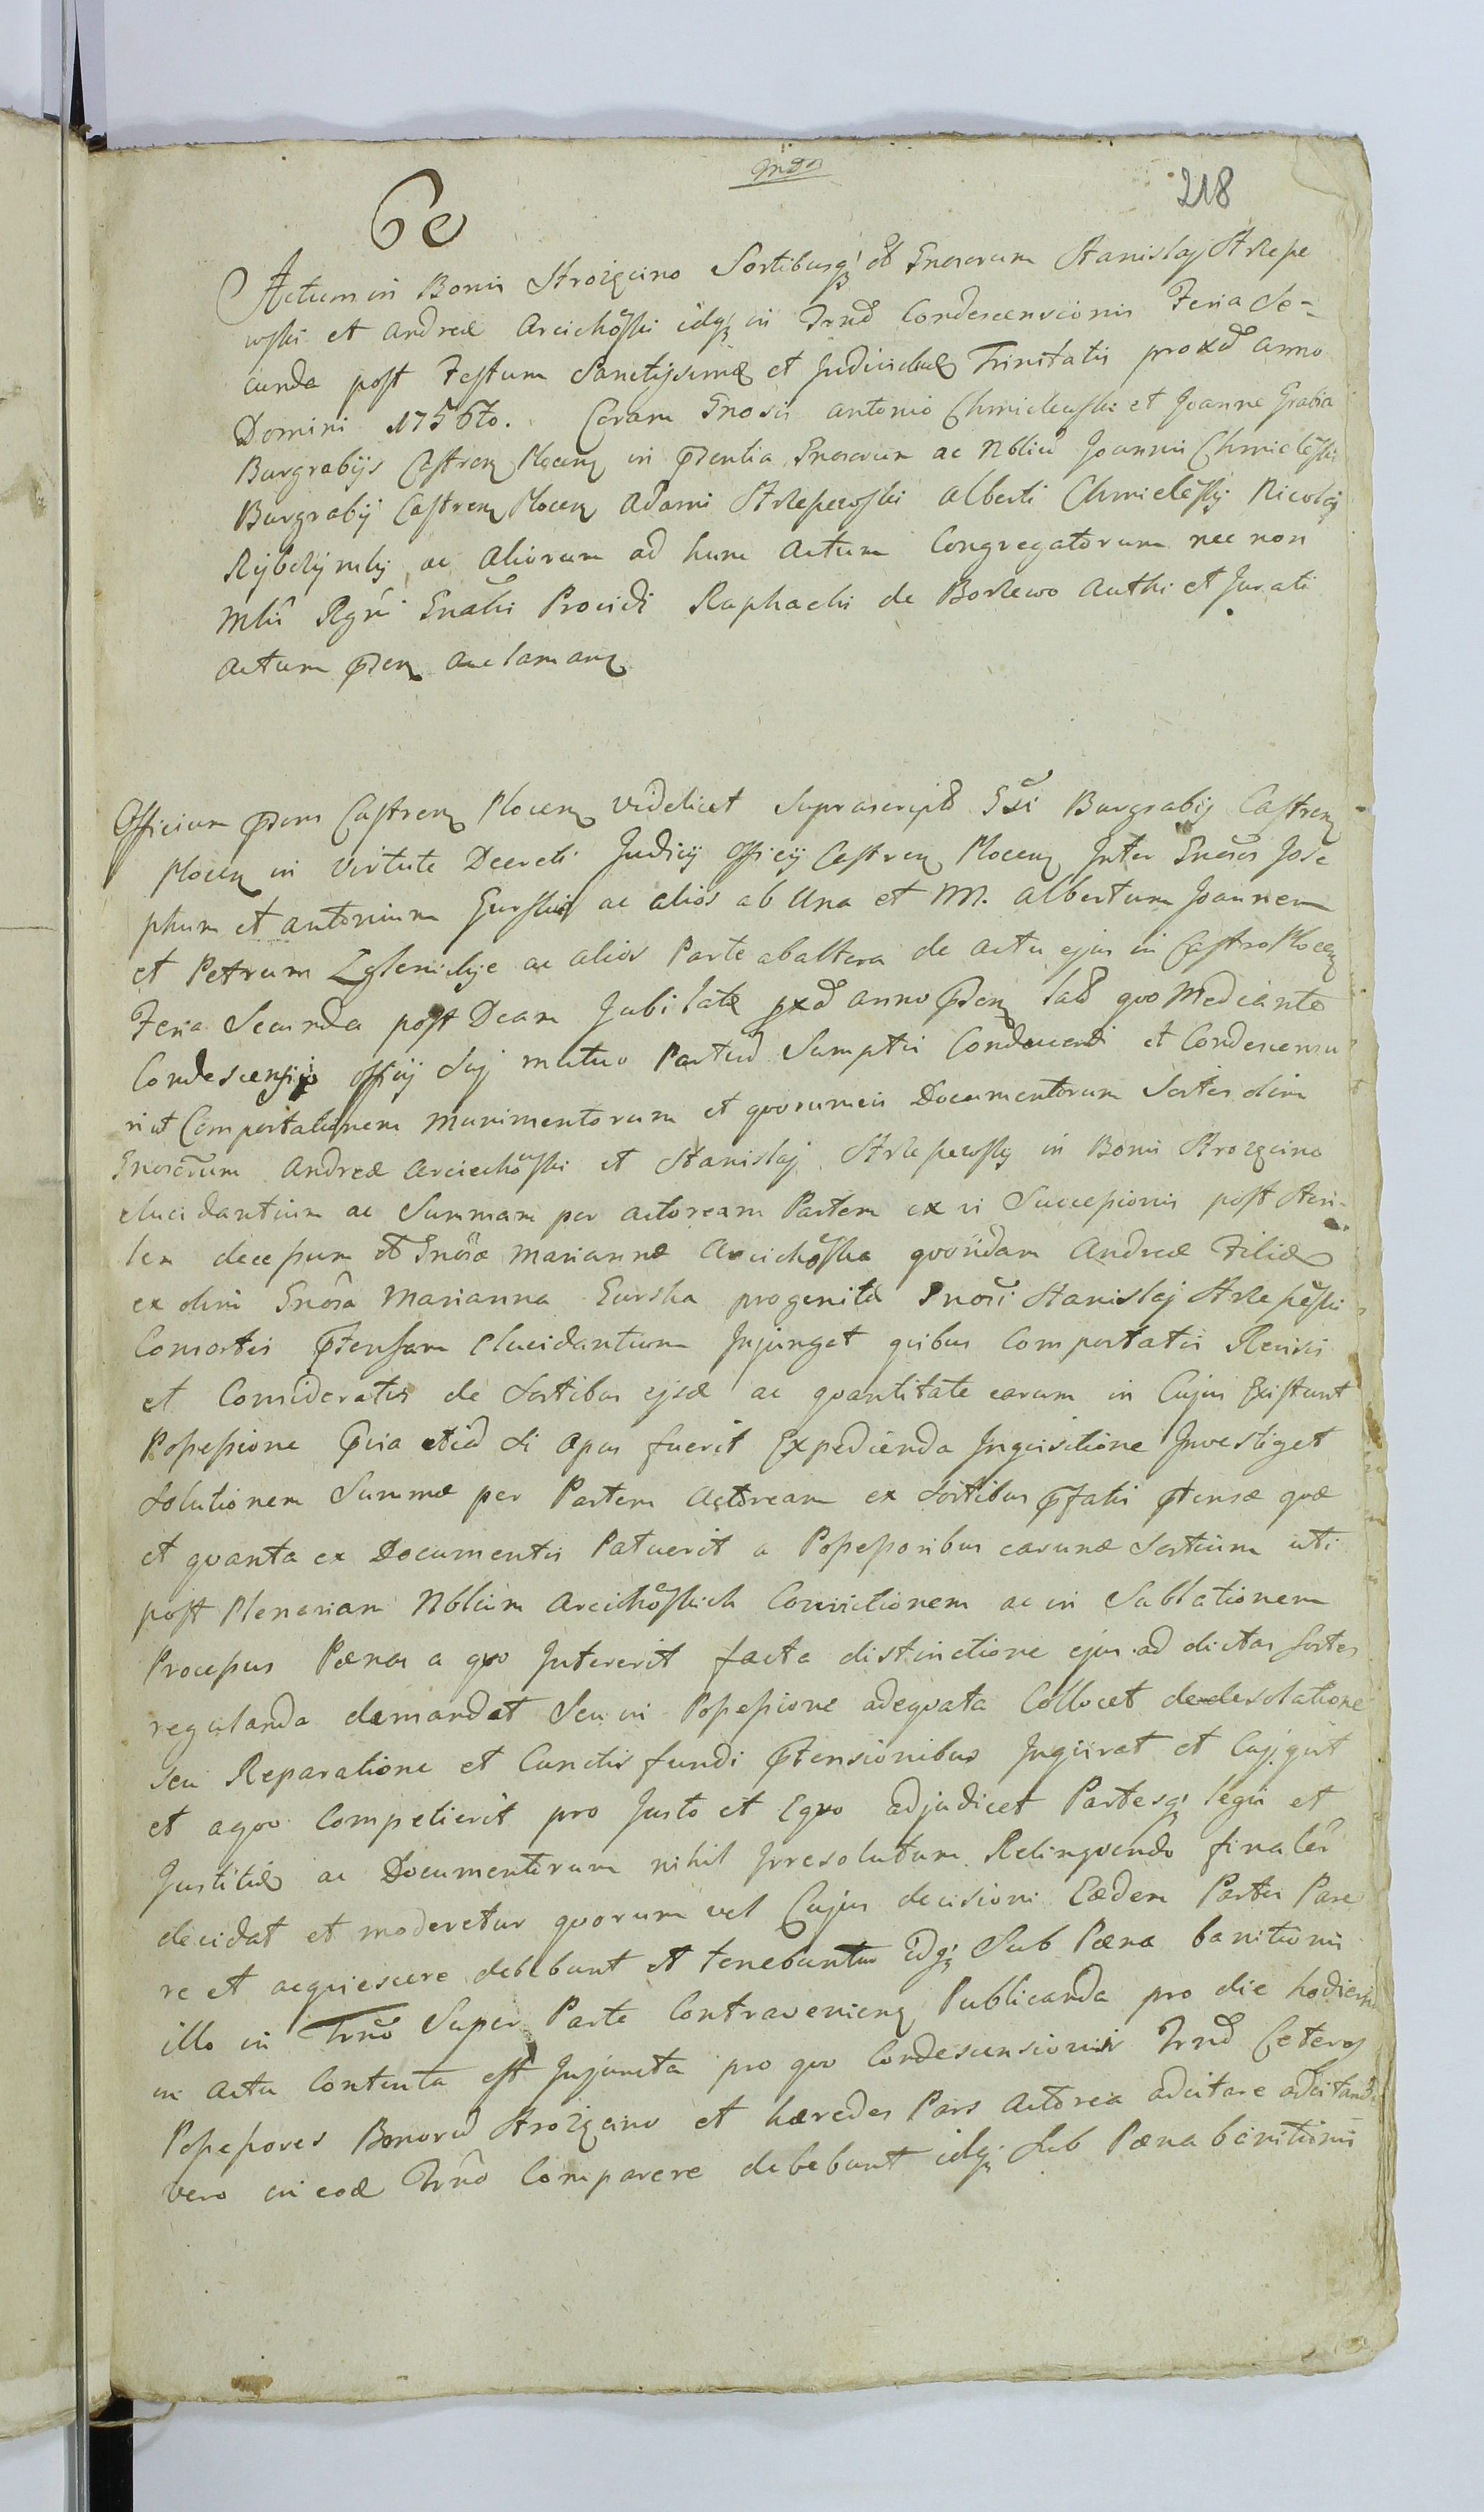 218
60
Actum in Bonis Stroizęcino Sortibusq; et Gnosorum Stanislaj Strzepe
wski et Andreæ Arcichoski idq; in Trnō Condescensionis Feria Se-
cunda post Festum Sanctissimæ et Individuæ Trinitatis proxā anno
Domini 1756to. Coram Gnosis Antonio Chmielewski et Joanne Grabia
Burgrabijs Castren Plocen in Pntia Gnosorum ac Nbliū Joannis Chmieleski
Burgrabij Castren Plocen Adami Strzepewski Alberti Chmieleskj Nicolaj
ac aliorum ad hunc Actum Congregatorum nec non
Mlii Rgni Gnalis Providi Raphaelis de Borzewo Authi et Jurati
Actum Pnten acclaman
Officium Pntens Castren Plocen videlicet Suprascripti Gsi Burgrabij Castren
Plocen in Virtute Decreti Judicij officij Castren Plocen Inter Gnosos Jose
phum et Antonium Gurskie ac alios ab Una et M. Albertum Joannem
et Petrum Zglenickje ac alios Parte ab altera de actu ejus in Castro Plocen
Feria Secunda post Dcam Jubilate pxā anno Pnten latō quo Mediante
Condescensio officij Suj mutuo Partiū Sumptu Conducendi et Condescensu
ri ut Comportationem munimentorum et quorumvis Documentorum Sortes olim
Gnosorum Andreæ Arciechoski et Stanislaj Strzepewskj in Bonis Stroizęcino
elucidantium ac Summam per actoream Partem ex vi Successionis post Steri-
lem decessum Gnosæ Mariannæ Arcichoska quondam Andreæ Filiæ
ex olim Gnosa Marianna Gurska progenitæ Gnosi Stanislaj Strzepeski
Consortis Ptensam Elucidantium Injunget quibus Comportatis Revisis
et Consideratis de Sortibus ejsd ac quantitate earum in Cujus Existunt
Possessione Pvia etiā si Opus fuerit Expedienda Inquisitione Investiget
Solutionem Summæ per Partem Actoream ex Sortibus Pfatis Ptensæ quæ
et quanta ex Documentis Patuerit a Possessoribus earund Sortium uti
post Plenariam Nblium Arcichoskich Convictionem ac in Sublationem
Processus Pœnas a quo Intererit facta distinctione ejus ad dictas Sortes
regulanda demandet Seu in Possessione adequata Collocet de desolatione
seu Reparatione et Cunctis fundi Ptensionibus Inquirat et Cujquit
et aquo Competierit pro Justo et Equo adjudicet Partesq; legis et
Justitiæ ac Documentorum nihil Irresolutum Relinquendo finalēr
decidat et moderetur quorum vel Cujus decisioni Eædem Partes Pare
re et acquiescere debebunt et tenebuntur Idq; Sub Pœna banitionis
illo in Trnō Super Parte Contravenien Publicanda pro die hodierna
in Actu Contenta est Injuncta pro quo Condescensionis Trnō Ceteros
Possessores Bonorū Stroizęcino et hæredes Pars Actorea adcitare adcitandi
vero in eod Trnō Comparere debebunt idq; Sub Pœna banitionis